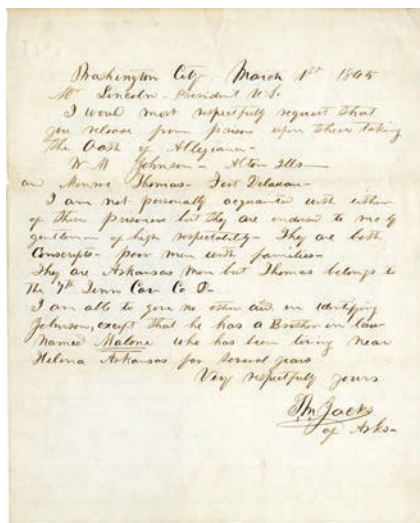 Washington City March 1st 1865
Mr Lincoln - President U.S.
I would most respectfully request that
you release from prison upon their taking
the Oath of Allegiance -
W. M Johnson - Alton Ills -
and Monroe Thomas - Fort Delaware -
I am not personally acquainted with either
of these prisoners but they are endorsed to me by
gentlemen of high respectability - They are both
Conscripts - poor men with families -
They are Arkansas men but Thomas belongs to
the 7th Tenn Cav Co D -
I am able to give no other aid in identifying
Johnson, except that he has a Brother in law
named Malone who has been living near
Helena Arkansas for several years
Very respectfully yours
Jacks
of Arks -